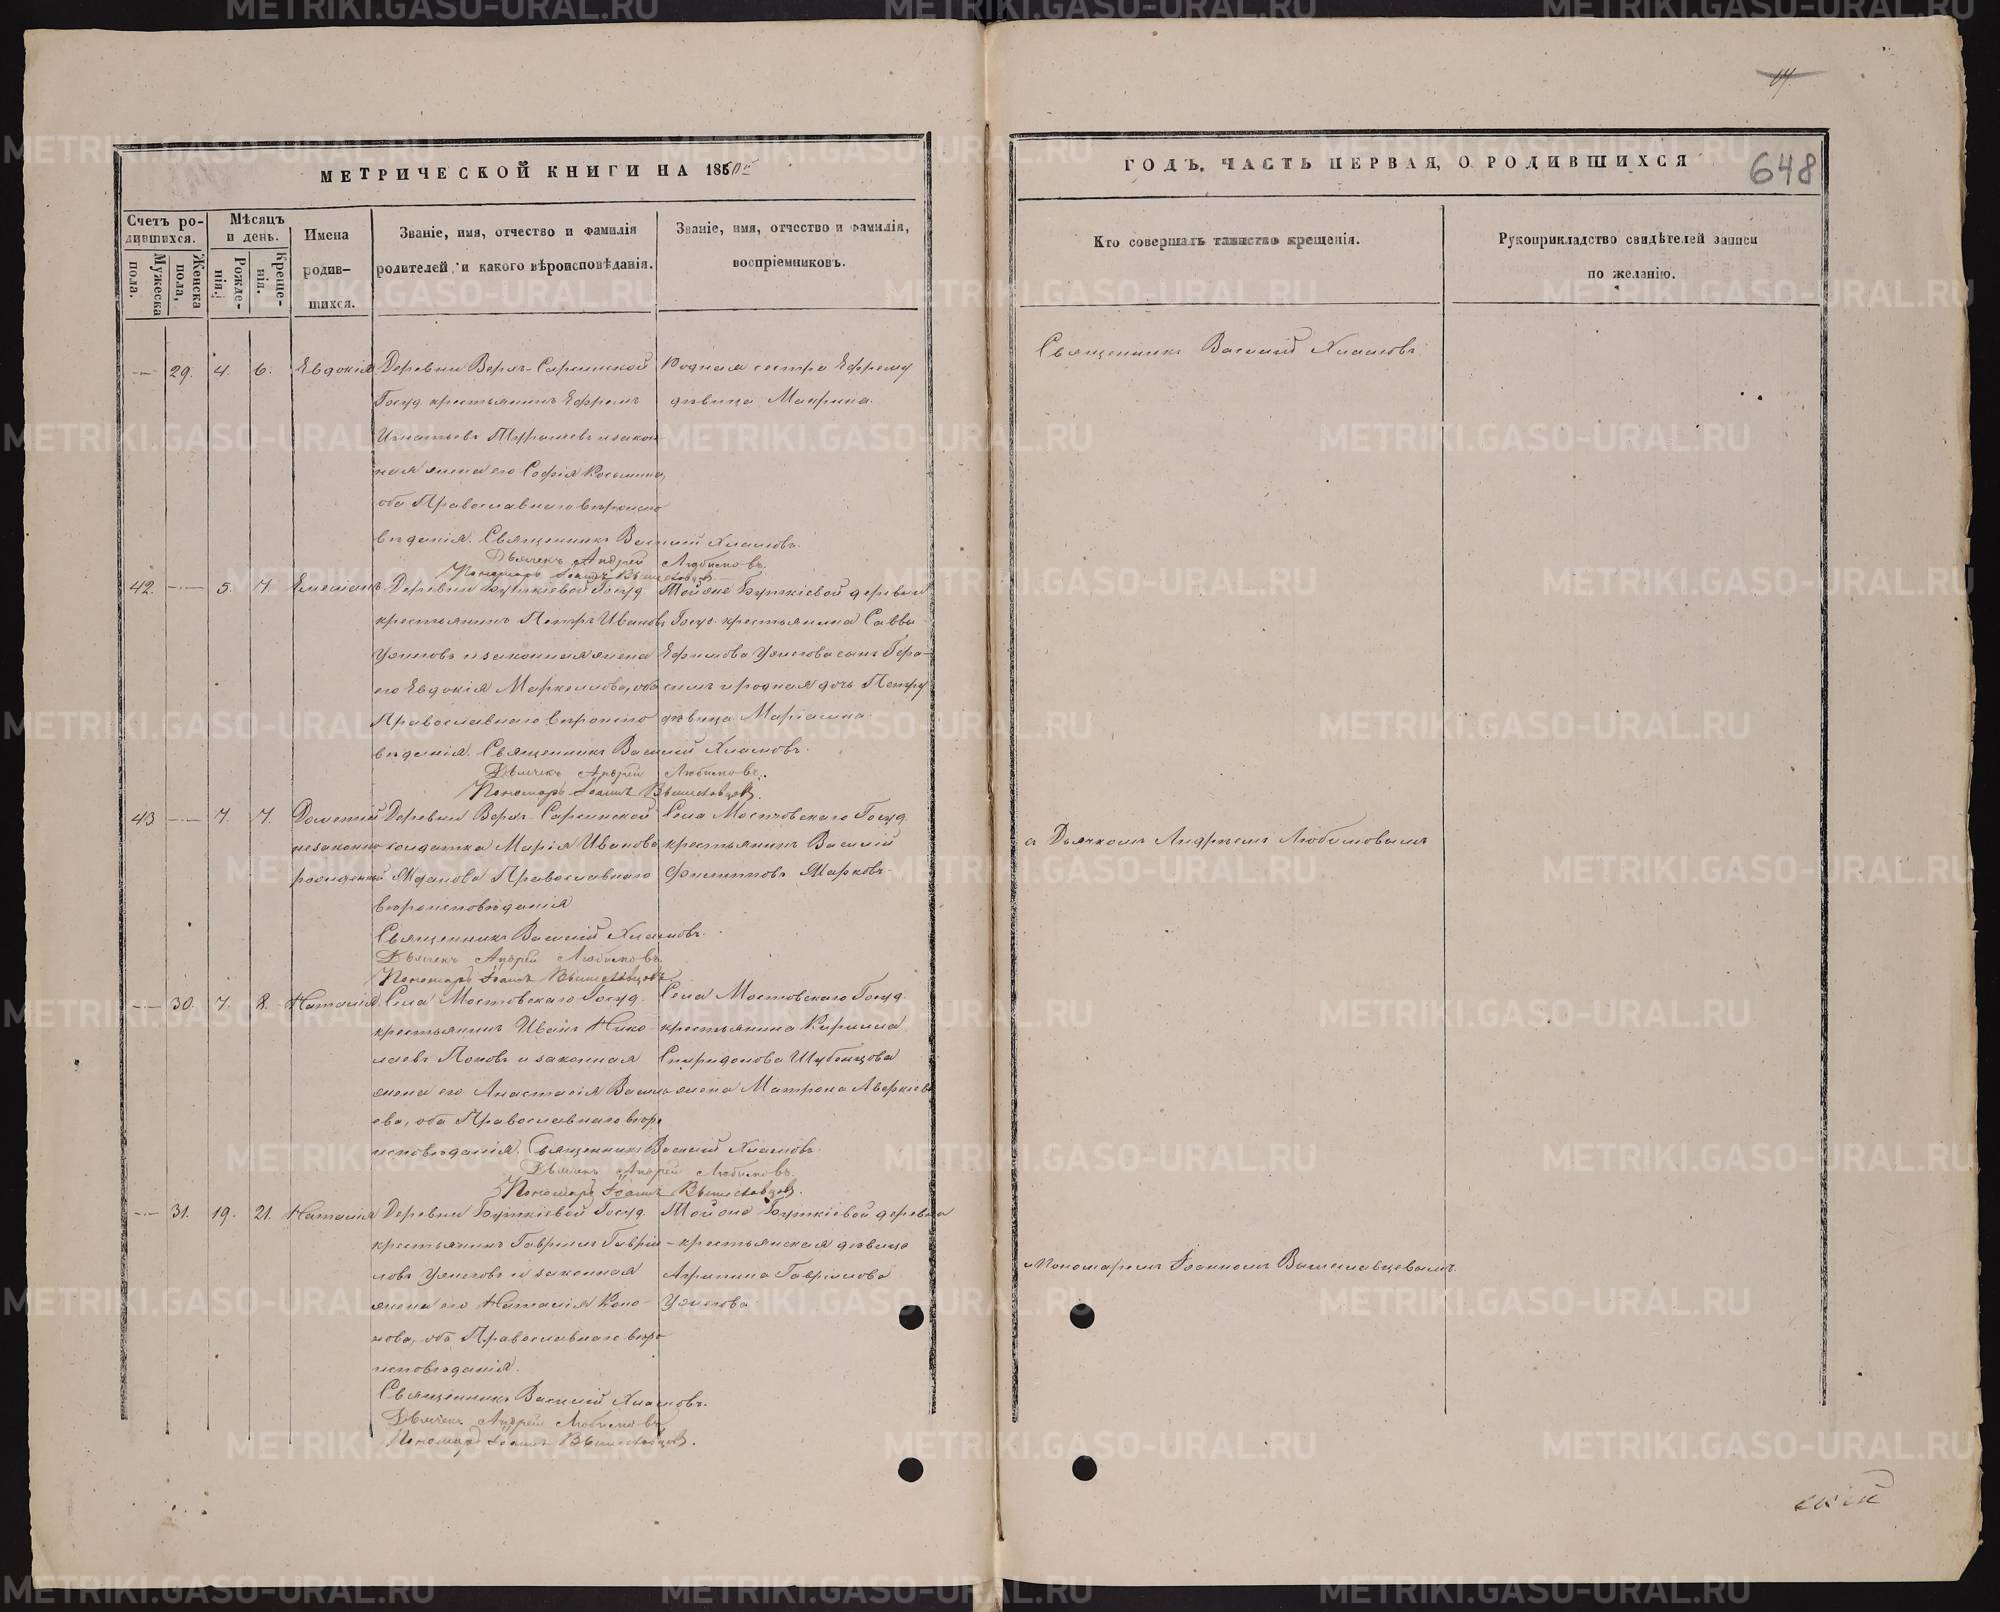 МЕТРИЧЕСКОЙ КНИГИ НА 1860й
ГОДЪ, ЧАСТЬ ПЕРВАЯ, О РОДИВШИХСЯ
648
Счетъ родившихся.
Мужеска пола.
Женска пола,
Мѣсяцъ и день.
Рожденія.
Крещенія.
Имена родившихся.
Званіе, имя, отчество и фамилія
родителей и какого вѣроисповѣданія.
Званіе, имя, отчество и фамилія,
воспріемниковъ.
Кто совершалъ таинство крещенія.
Рукоприкладство свидѣтелей записи
по желанію.
29. 4. 6. Евдокія Деревни Верх-Сарсинской
Госуд. крестьянинъ Ефремъ
Игнатьевъ и закон-
ная жена его Софія Косьмина,
оба Православнаго вѣроиспо
вѣданія. Священникъ Василий Хламовъ.
Дьячекъ Андрей Любимовъ.
Пономарь Іоаннъ Вышеславцевъ
Родная сестра Ефрему
дѣвица Макрина.
Священникъ Василій Хламовъ
42. 5. 7. Деревни Буткіевой Госуд.
крестьянинъ Петръ Ивановъ
Ужеговъ и законная жена
его Евдокія Маркеллова, оба
Православнаго вѣроиспо
вѣданія. Священникъ Василий Хламовъ.
Дьячекъ Андрей Любимовъ.
Пономарь Іоаннъ Вышеславцевъ.
Той же Буткіевой деревни
Госуд. крестьянина Саввы
Ефимова Ужегова сынъ Гера-
симъ и родная дочь Петру
дѣвица Маріамна
43 7. 7. Дометій
незаконно
рожденный
Деревни Верх-Сарсинской
солдатка Марія Иванова
Жданова Православнаго
вѣроисповѣданія
Священникъ Василий Хламовъ.
Дьячекъ Андрей Любимовъ.
Пономарь Іоаннъ Вышеславцевъ
Села Мостовскаго Госуд.
крестьянинъ Василій
Филипповъ Марковъ.
с Дьячкомъ Андреемъ Любимовымъ
30. 7. 8. Наталія. Села Мостовскаго Госуд.
крестьянинъ Иванъ Нико-
лаевъ Поповъ и законная
жена его Анастасія Василь
ева, оба Православнаго вѣро
исповѣданія. Священникъ Василий Хламовъ.
Дьячекъ Андрей Любимовъ.
Пономарь Іоаннъ Вышеславцевъ.
Села Мостовскаго Госуд.
крестьянина Кирилла
Спиридонова Шубенцова
жена Матрона Аверкіева
31. 19. 21. Наталія Деревни Буткіевой Госуд.
крестьянинъ Гавріилъ Гаврии-
ловъ Ужеговъ и законная
жена его Наталія Коно-
нова, оба Православнаго вѣро
исповѣданія.
Священникъ Василий Хламовъ.
Дьячекъ Андрей Любимовъ.
Пономарь Іоаннъ Вышеславцевъ.
Той же Буткіевой деревни
крестьянская дѣвица
Агрипина Гаврилова
Ужегова
и Пономаремъ Іоанномъ Вышеславцевымъ.
METRIKI.GASO-URAL.RU